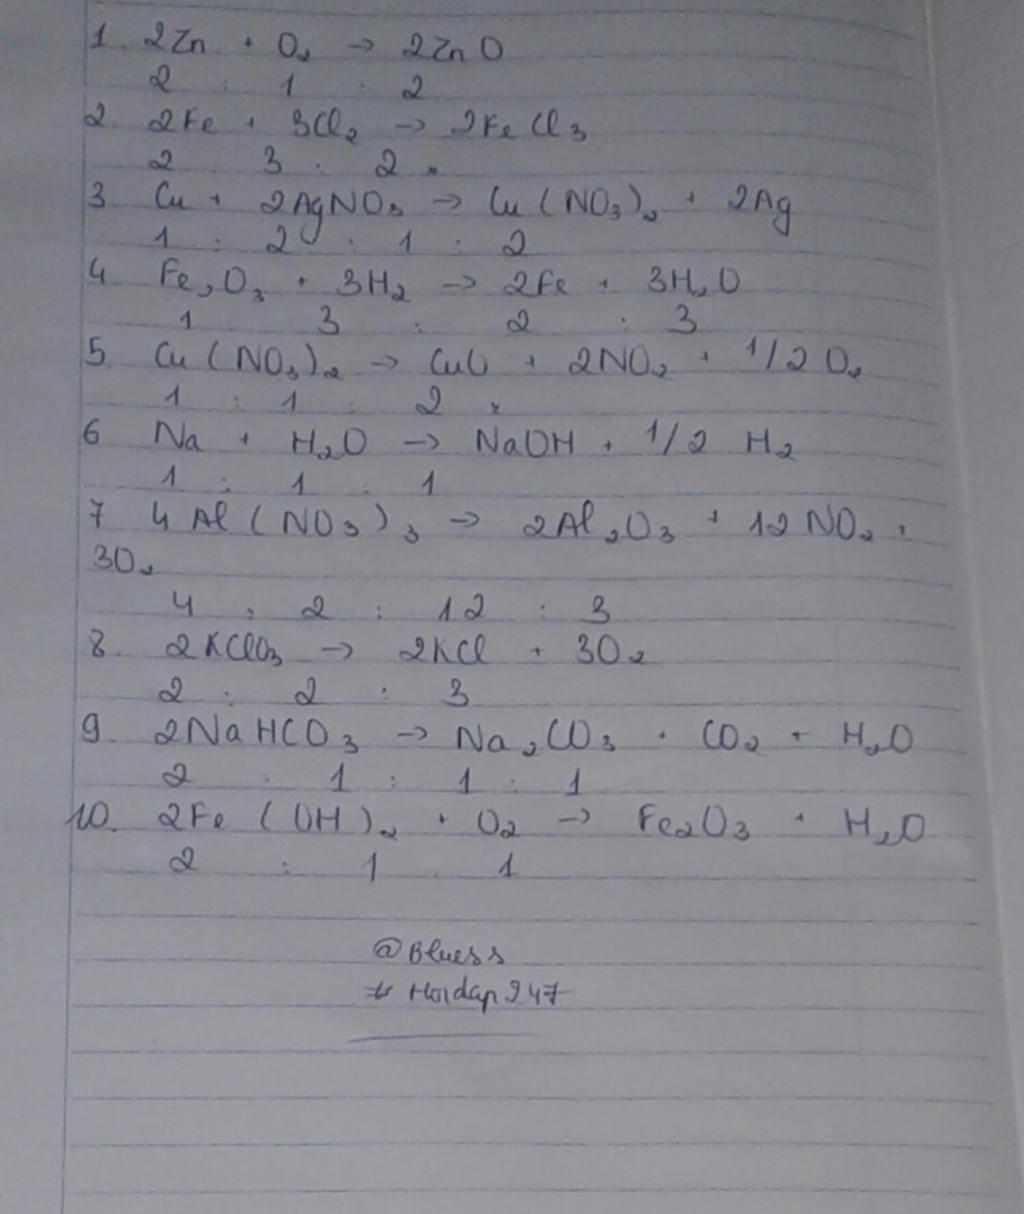 1. 2Zn + O₂ → 2ZnO
2 : 1 : 2
2. 2Fe + 3Cl₂ → 2FeCl₃
2 : 3 : 2
3 Cu + 2AgNO₃ → Cu(NO₃)₂ + 2Ag
1 : 2 : 1 : 2
4. Fe₂O₃ + 3H₂ → 2Fe + 3H₂O
1 : 3 : 2 : 3
5. Cu(NO₃)₂ → CuO + 2NO₂ + 1/2 O₂
1 : 1 : 2
6 Na + H₂O → NaOH + 1/2 H₂
1 : 1 : 1
7 4Al(NO₃)₃ → 2Al₂O₃ + 12NO₂ +
3O₂
4 : 2 : 12 : 3
8. 2KClO₃ → 2KCl + 3O₂
2 : 2 : 3
9. 2NaHCO₃ → Na₂CO₃ + CO₂ + H₂O
2 : 1 : 1 : 1
10. 2Fe(OH)₂ + O₂ → Fe₂O₃ + H₂O
2 : 1 : 1
@Bluess
# Hoidap247